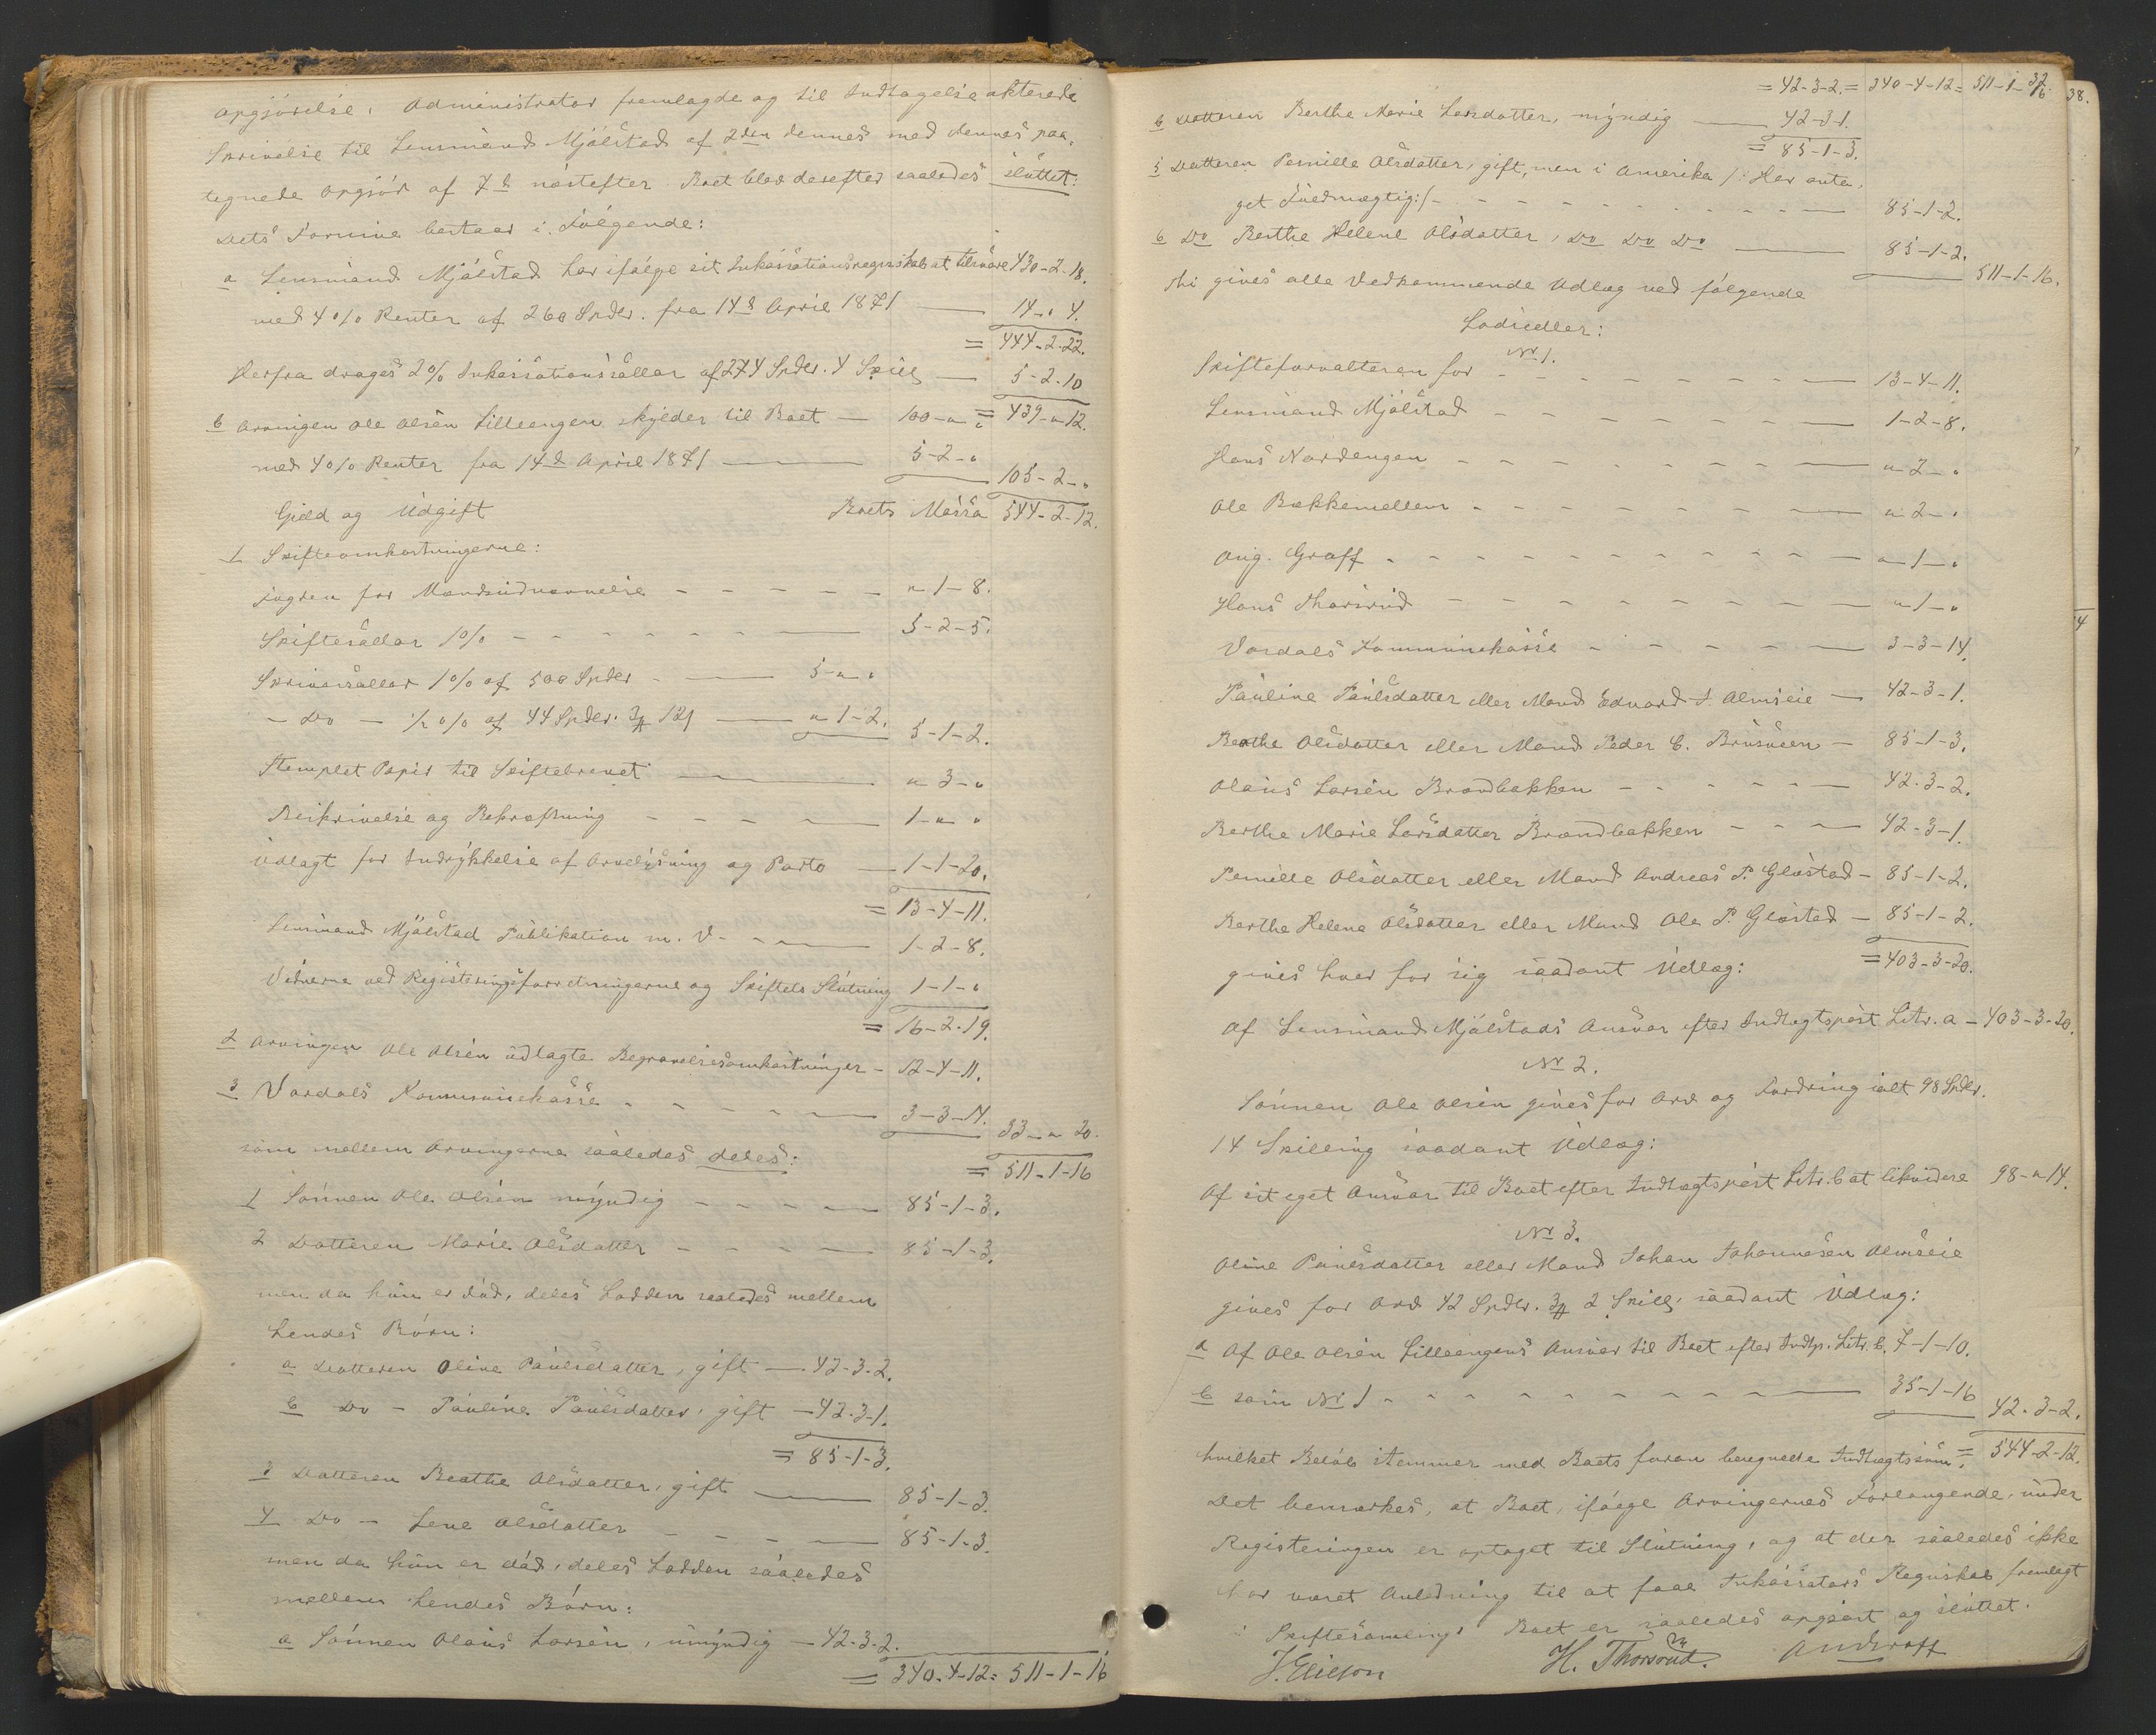 opgjörelse. Administrator fremlagde og til Indtagelse akterede
Skrivelse til Lensmand Mjølstad af 2den dennes med dennes paa-
tegnede Opgjør af 7d næstefter. Boet blev derefter saaledes sluttet:
Dets Formue bestaar i Følgende:
a Lensmand Mjølstad har ifølge sit Inkassationsregnskab at tilsvare 430-2-18.
med 4% Renter af 260 Spdlr. fra 14d April 1871 — 14-"-4.
= 444-2-22.
Herfra drages 2% Inkassationssallar af 274 Spdlr. 4 Skill — 5-2-10
= 439-"-12.
b Arvingen Ole Olsen Lilleengen skylder til Boet — 100-"-"
med 4% Renter fra 14d April 1871 — 5-2-"
105-2-"
Gjeld og Udgift Boets Massa 544-2-12.
1 Skifteomkostningerne:
Fogden for Mandsudnævnelse - - - - - "-1-8.
Skiftesallar 1% - - - - - - 5-2-5.
Skriversallar 1% af 500 Spdlr - — 5-"-"
- Do - ½% af 44 Spdlr. 3# 12s — "-1-2. 5-1-2.
Stemplet Papir til Skiftebrevet — "-3-"
Beskrivelse og Bekræftning - - - - 1-"-"
Udlagt for Indrykkelse af Arvelysning og Porto — 1-1-20.
= 13-4-11.
Lensmand Mjølstad Publikation m. V. - - — 1-2-8.
Vidnerne ved Registeringsforretningerne og Skiftets Slutning 1-1-"
= 16-2-19.
2 Arvingen Ole Olsen udlagte Begravelsesomkostninger - 12-4-11.
3 Vardals Kommunekasse - - - - — 3-3-14.
33-"-20.
som mellem Arvingerne saaledes deles: = 511-1-16
1 Sønnen Ole Olsen myndig - - - - — 85-1-3.
2 Datteren Marie Olsdatter - - - - — 85-1-3.
men da hun er død, deles Lodden saaledes mellem
hendes Børn:
a Datteren Oline Paulsdatter, gift — 42-3-2.
b Do - Pauline Paulsdatter, gift — 42-3-1.
= 85-1-3.
3 Datteren Beathe Olsdatter, gift — 85-1-3.
4 Do - Lene Olsdatter - - - — 85-1-3.
men da hun er død, deles Lodden saaledes
mellem hendes Børn:
a Sønnen Olaus Larsen, umyndig — 42-3-2.
= 340-4-12 = 511-1-16
38.
= 42-3-2. = 340-4-12 = 511-1-16
b Datteren Berthe Marie Larsdatter, myndig — 42-3-1.
= 85-1-3.
5 Datteren Pernille Olsdatter, gift, men i Amerika /: Har anta-
get Fuldmægtig:/ - - - - - - - — 85-1-2.
6 Do Berthe Helene Olsdatter, Do Do Do — 85-1-2.
511-1-16.
Thi gives alle Vedkommende Udlæg ved følgende
Lodsedler:
No 1.
Skifteforvalteren for - - - - - - — 13-4-11.
Lensmand Mjølstad - - - - - - — 1-2-8.
Hans Nordengen - - - - - - — "-2-"
Ole Bakkemellem - - - - - - — "-2-"
Aug. Graff - - - - - - - — "-1-"
Hans Thorsrud - - - - - - — "-1-"
Vardals Kommunekasse - - - - — 3-3-14.
Pauline Paulsdatter eller Mand Edvard J. Almseie — 42-3-1.
Beathe Olsdatter eller Mand Peder C. Brusveen — 85-1-3.
Olaus Larsen Brandbakken - - - - — 42-3-2.
Berthe Marie Larsdatter Brandbakken - - — 42-3-1.
Pernille Olsdatter eller Mand Andreas P. Gløstad — 85-1-2.
Berthe Helene Olsdatter eller Mand Ole P. Gløstad — 85-1-2.
= 403-3-20.
gives hver for sig saadant Udlæg:
Af Lensmand Mjølstads Ansvar efter Indtægtspost Litr. a — 403-3-20.
No 2.
Sønnen Ole Olsen gives for Arv og Fordring ialt 98 Spdlr.
14 Skilling saadant Udlæg:
Af sit eget Ansvar til Boet efter Indtægtspost Litr. b at likvidere 98-"-14.
No 3.
Oline Paulsdatter eller Mand Johan Johannesen Almseie
gives for Arv 42 Spdlr. 3# 2 Skill, saadant Udlæg:
a Af Ole Olsen Lilleengens Ansvar til Boet efter Indtp. Litr. b. 7-1-10.
b som No 1 - - - - - - - — 35-1-16
42-3-2.
hvilket Beløb stemmer med Boets foran beregnede Indtægtssum. = 544-2-12.
Det bemærkes, at Boet, ifølge Arvingernes Forlangende, under
Registeringen er optaget til Slutning, og at der saaledes ikke
har været Anledning til at faae Inkassators Regnskab fremlagt
i Skiftesamling. Boet er saaledes opgjort og sluttet.
H. Thorsrud.